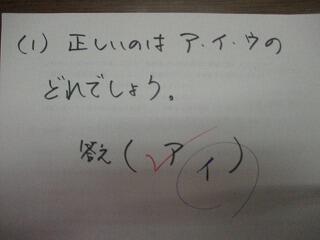 (1) 正しいのは ア・イ・ウの
どれでしょう。
答え ( ア イ )